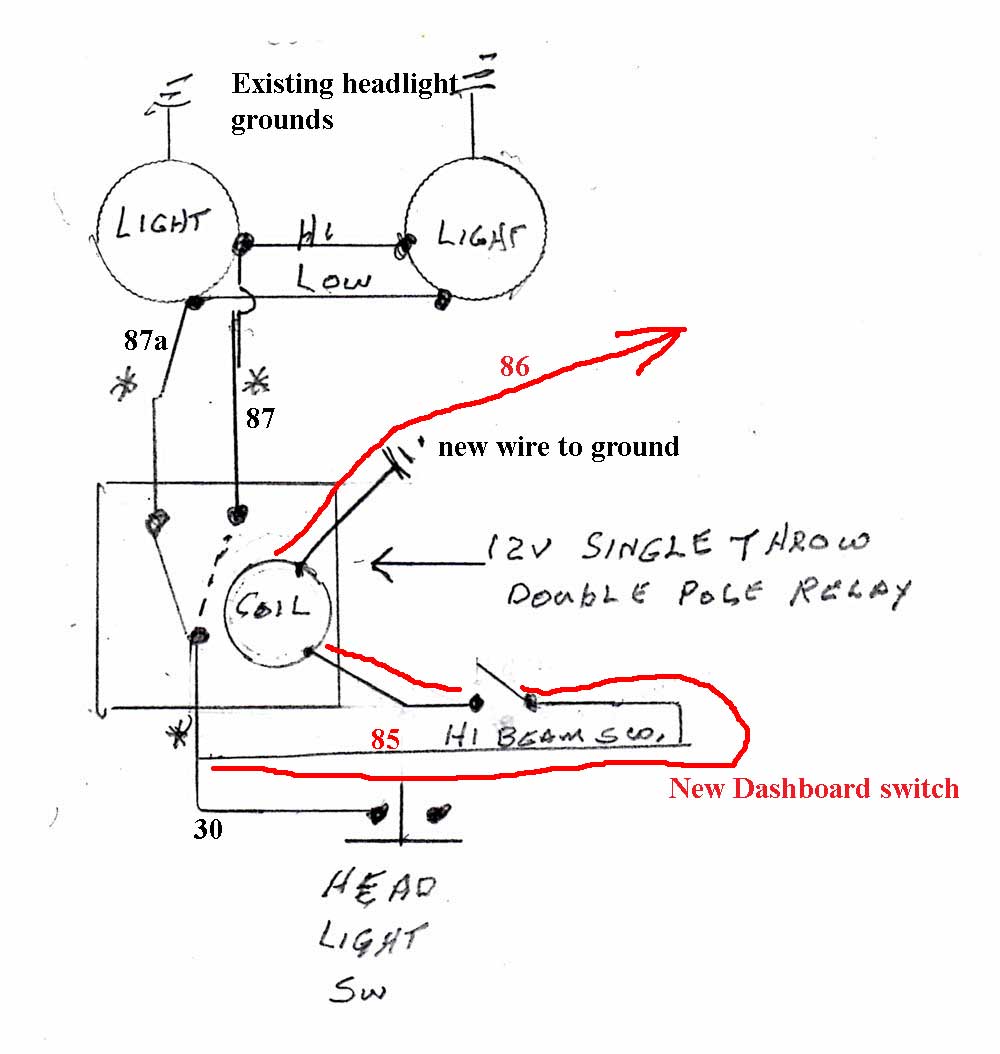 Existing headlight
grounds
LIGHT
LIGHT
HI
LOW
87a
87
86
new wire to ground
12V SINGLE THROW
DOUBLE POLE RELAY
COIL
85
HI BEAM SW.
New Dashboard switch
30
HEAD
LIGHT
SW